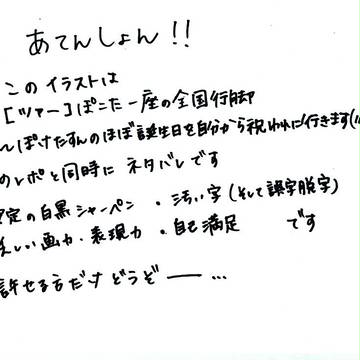 あてんしょん!!
このイラストは
[ツアー]ぽこた一座の全国行脚
〜ぽけたすんのほぼ誕生日を自分から祝われに行きます(11
のレポと同時にネタバレです
安定の白黒シャーペン ・汚い字(そして誤字脱字)
乏しい画力・表現力 ・自己満足 です
許せる方だけどうぞー…